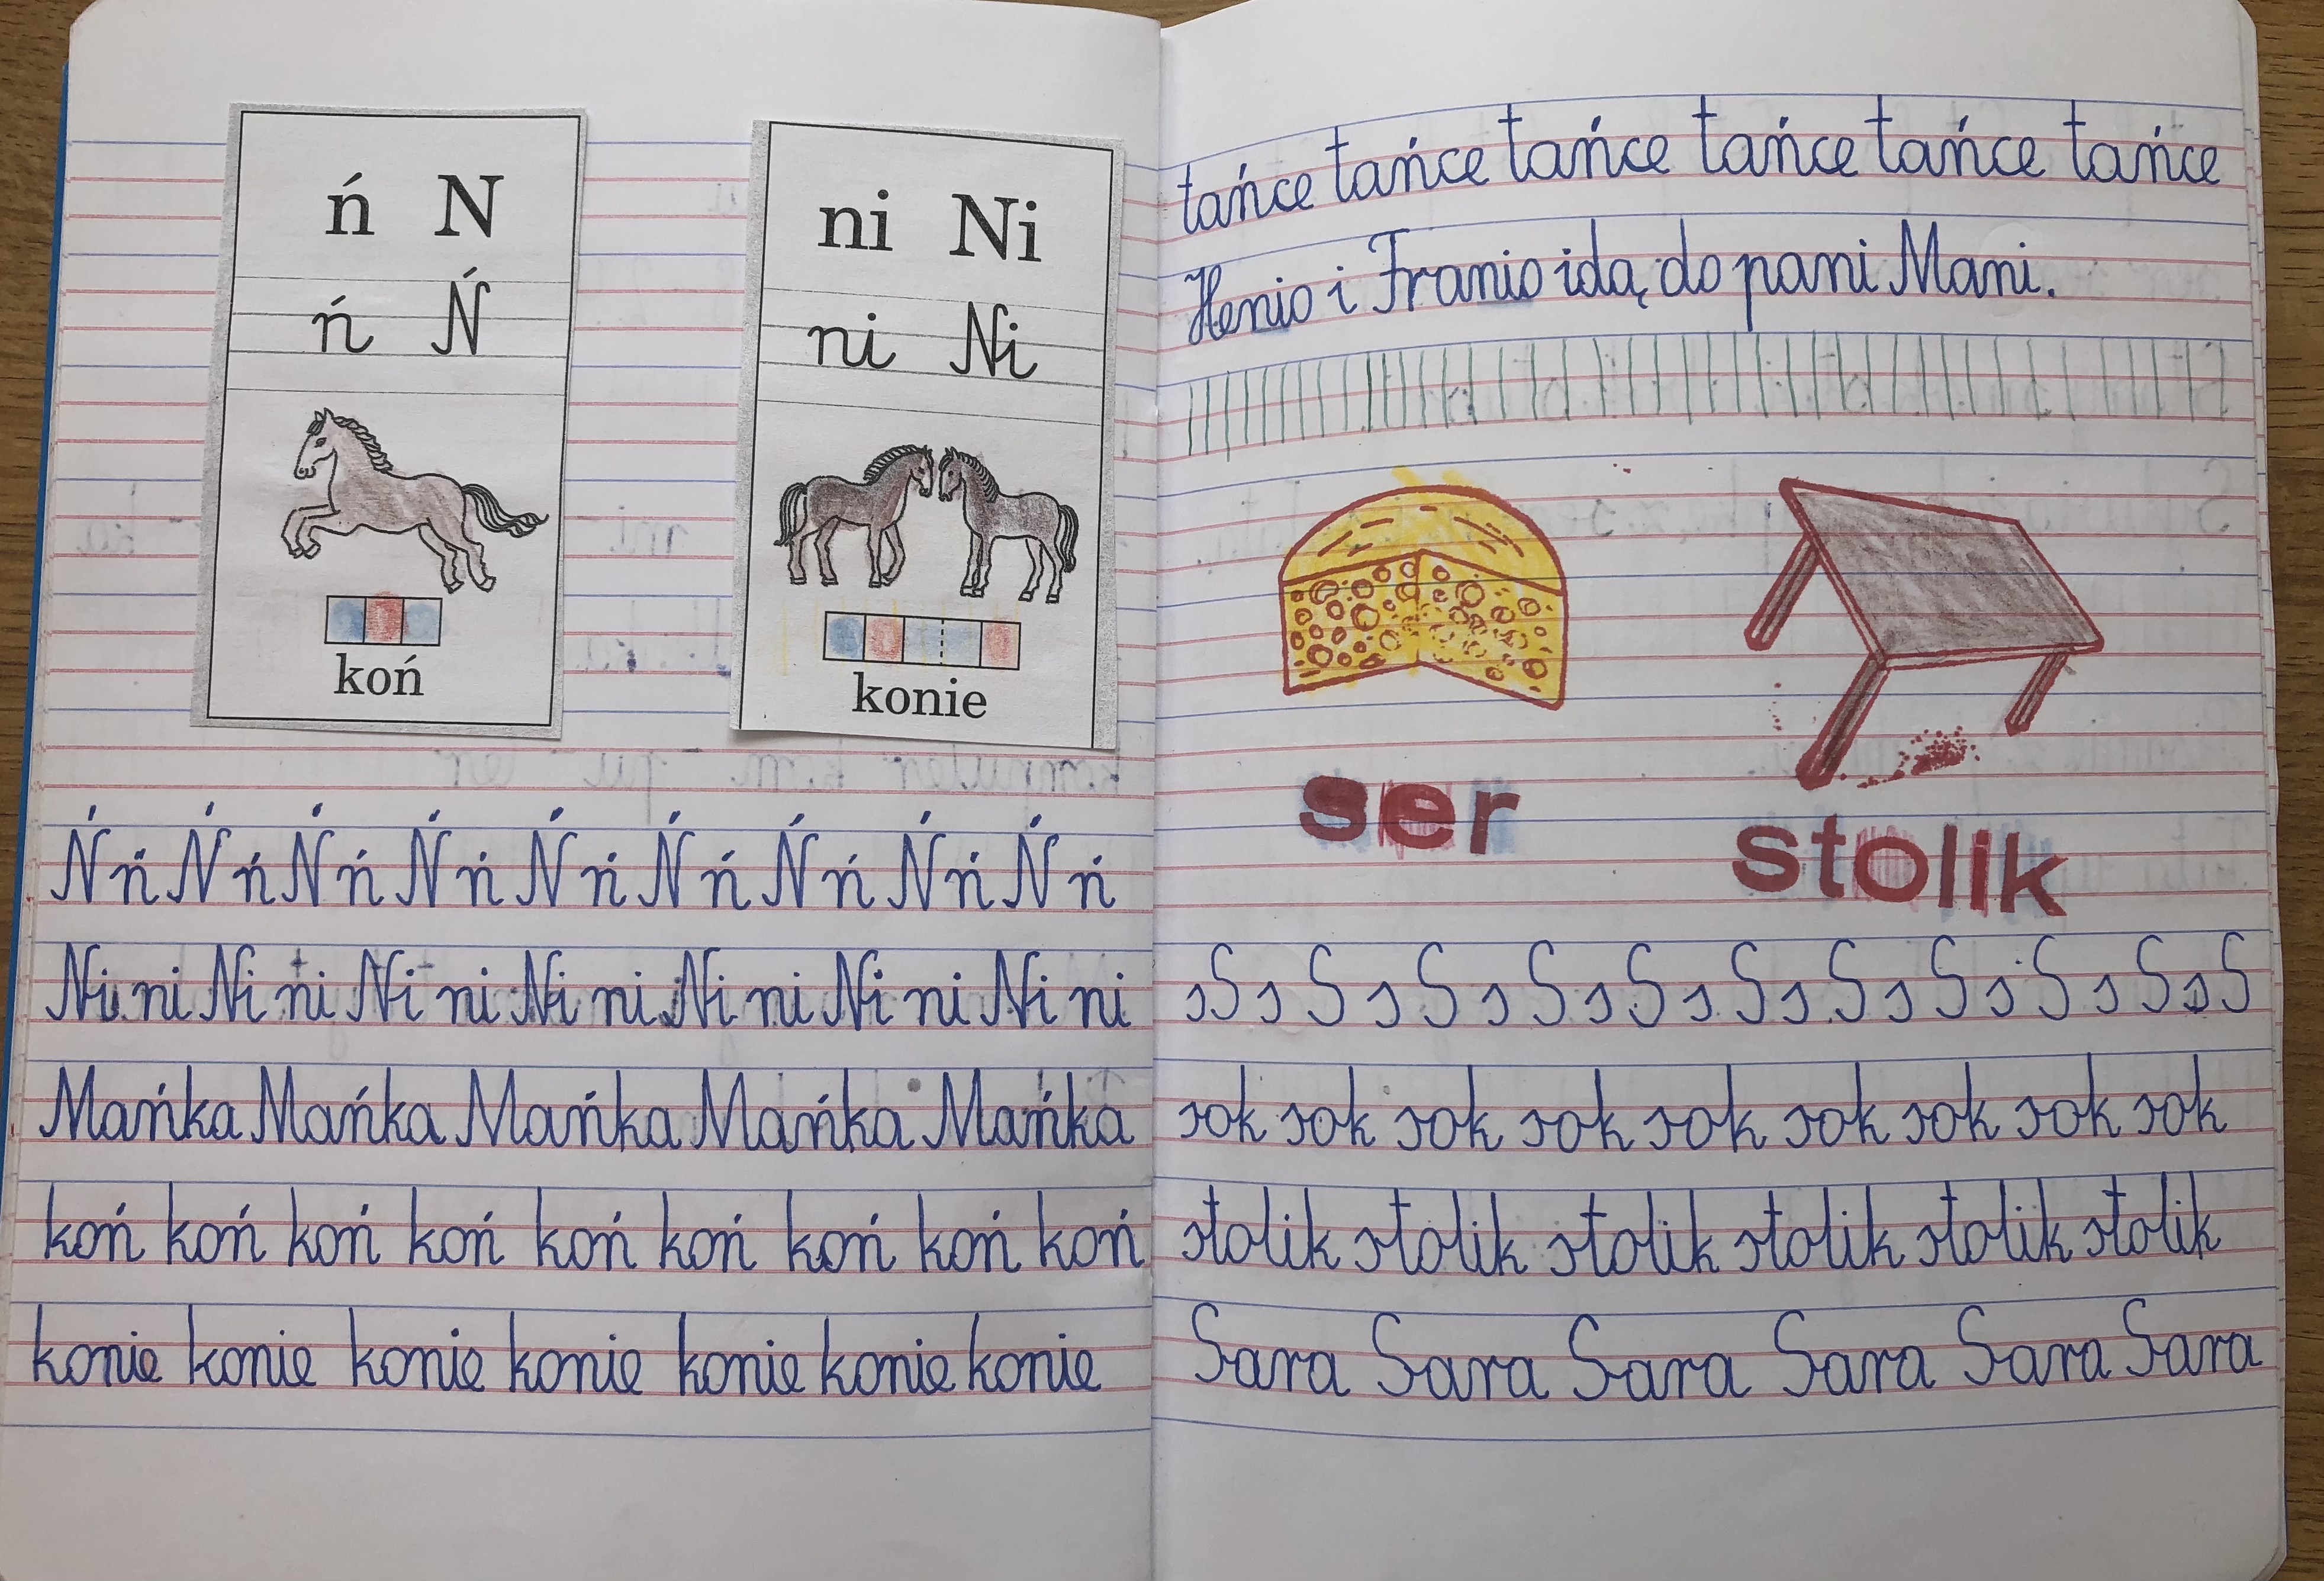 ń N
ń Ń
koń
ni Ni
ni Ni
konie
Ń ń Ń ń Ń ń Ń ń Ń ń Ń ń Ń ń Ń ń Ń ń
Ni ni Ni ni Ni ni Ni ni Ni ni Ni ni Ni ni
Mańka Mańka Mańka Mańka Mańka
koń koń koń koń koń koń koń koń koń
konie konie konie konie konie konie konie
tańce tańce tańce tańce tańce tańce
Henio i Franio idą do pani Mani.
ser
stolik
s S s S s S s S s S s S s S s S s S s S s S
sok sok sok sok sok sok sok sok sok
stolik stolik stolik stolik stolik stolik
Sara Sara Sara Sara Sara Sara